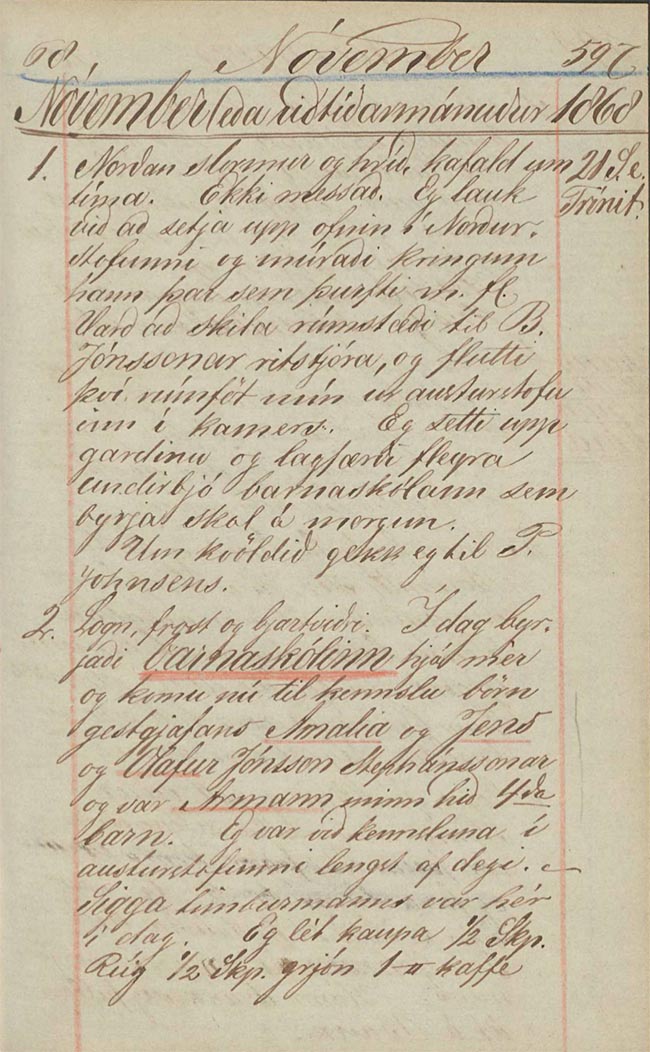 68 Nóvember 597
Nóvember (eða ridtíðarmánuður 1868
1. Norðan stormur og hríð, kafald um 21 S. e.
tíma. Ekki messað. Eg lauk Trínit.
við að setja upp ofnin í Norður-
stofunni og múraði kringum
hann þar sem þurfti m. fl.
Varð að skila rúmstæði til B.
Jónssonar ritstjóra, og flutti
því rúmföt mín úr austurstofu
inn í kamers. Eg setti upp
gardinu og lagfærði fleyra
undirbjó barnaskólann sem
byrja skal á morgun.
Um kvöldið gekk eg til P.
Johnsens.
2. Logn, frost og bjartviðri. Í dag byr-
jaði barnaskólinn hjá mér
og komu nú til kennslu börn
gestgjafans Amalia og Jens
og Olafur Jónsson Stephánssonar
og var Armann minn hið 4da
barn. Eg var við kennsluna í
austurstofunni lengst af degi. –
Sigga timburmanns var hér
í dag. Eg lét kaupa 1/2 Skp.
Rúg 1/2 Skp. grjón 1 π kaffe